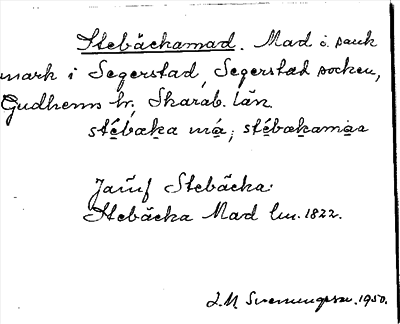 Stebäckamad. Mad i. sank
mark i Segerstad, Segerstad socken,
Gudhems hr, Skarab. län
stébæka má; stébækamaa
Jämf Stebäcka.
Stebäcka Mad Lm. 1822.
1950.